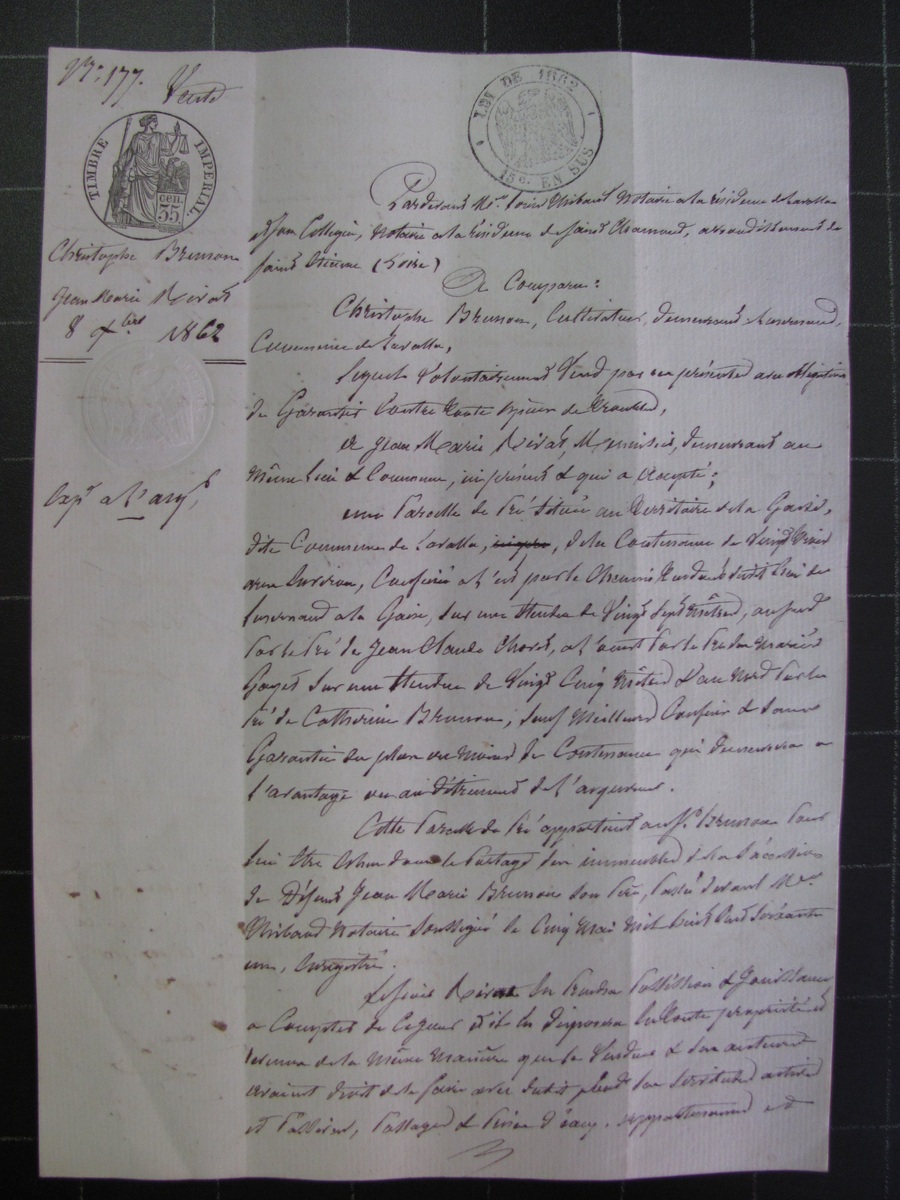 N.° 177.
Vente
TIMBRE IMPERIAL
35 cen.
LOI DE 1862
15 c. EN SUS
Christophe Brunon
Jean Marie Rivat
8 xbre 1862
Exp. a l'acq.
Pardevant Me. Thibaud Notaire à la résidence de Lavalla
& son Collègue, Notaire à la résidence de Saint Chamond, arrondissement de
Saint Etienne (Loire)
A Comparu:
Christophe Brunon, Cultivateur, demeurant à Luzernaud,
Commune de Lavalla,
Lequel volontairement Vend par ces présentes avec obligation
de Garantir Contre toute espèce de troubles,
à Jean Marie Rivat, Menuisier, demeurant au
même lieu & Commune, ici présent & qui a accepté;
une Parcelle de Pré située au territoire de la
dite Commune de Lavalla, de la Contenance de Vingt
ares environ, Confiné à l'est par le Chemin tendant dudit lieu de
Luzernaud à la, sur une étendue de Vingt Sept mètres, au sud
Par le Pré de Jean Claude, à l'ouest Par le Pré de
sur une étendue de Vingt Cinq mètres & au Nord Par le
Pré de Catherine Brunon, sauf meilleurs Confins & sans
Garantie du plus ou moins de Contenance qui demeurera à
l'avantage ou au détriment de l'acquéreur.
Cette Parcelle de Pré appartient au Sr. Brunon Pour
lui être échue dans le Partage des immeubles de la succession
de Défunt Jean Marie Brunon son Père, Passé devant Me.
Thibaud Notaire soussigné le Cinq Mai mil huit cent soixante
un, enregistré.
Ledit Rivat en Prendra Possession & Jouissance
à Compter de Ce jour & il en disposera en toute propriété
de la même manière que le Vendeur & ses auteurs
avaient droit de le faire avec servitudes actives
et Passives, Passages & Prises d'eau, appartenances et